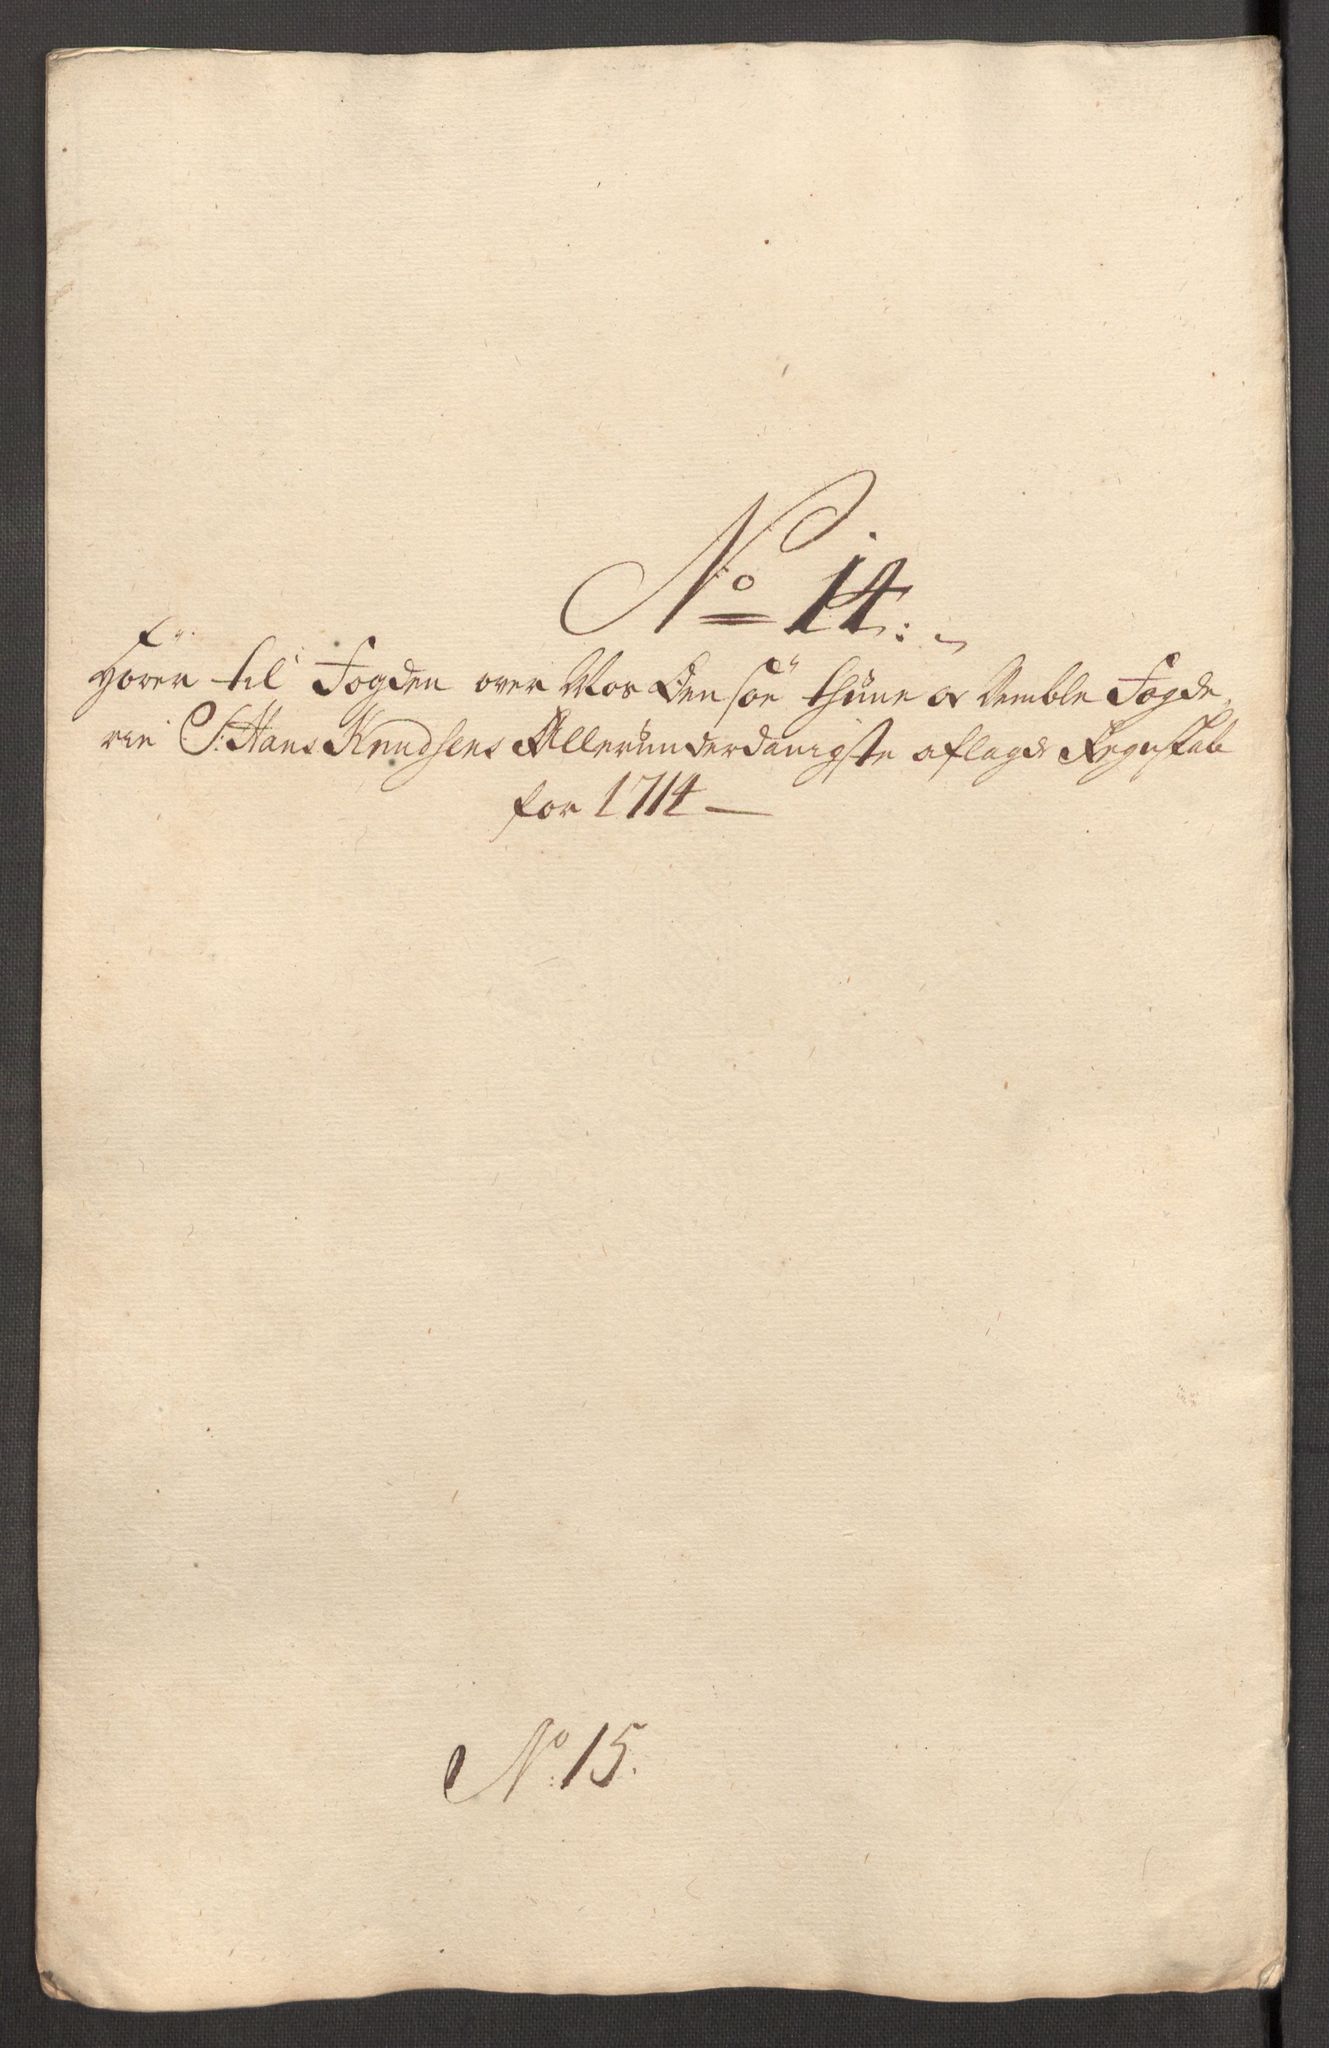 No 14:
Hörer til Fogden over Mos Onsöe thüne og Vemble Fogde
rie S: Hans Knudsens Alleründerdanigste aflagde Regnskab
for 1714
No: 15.